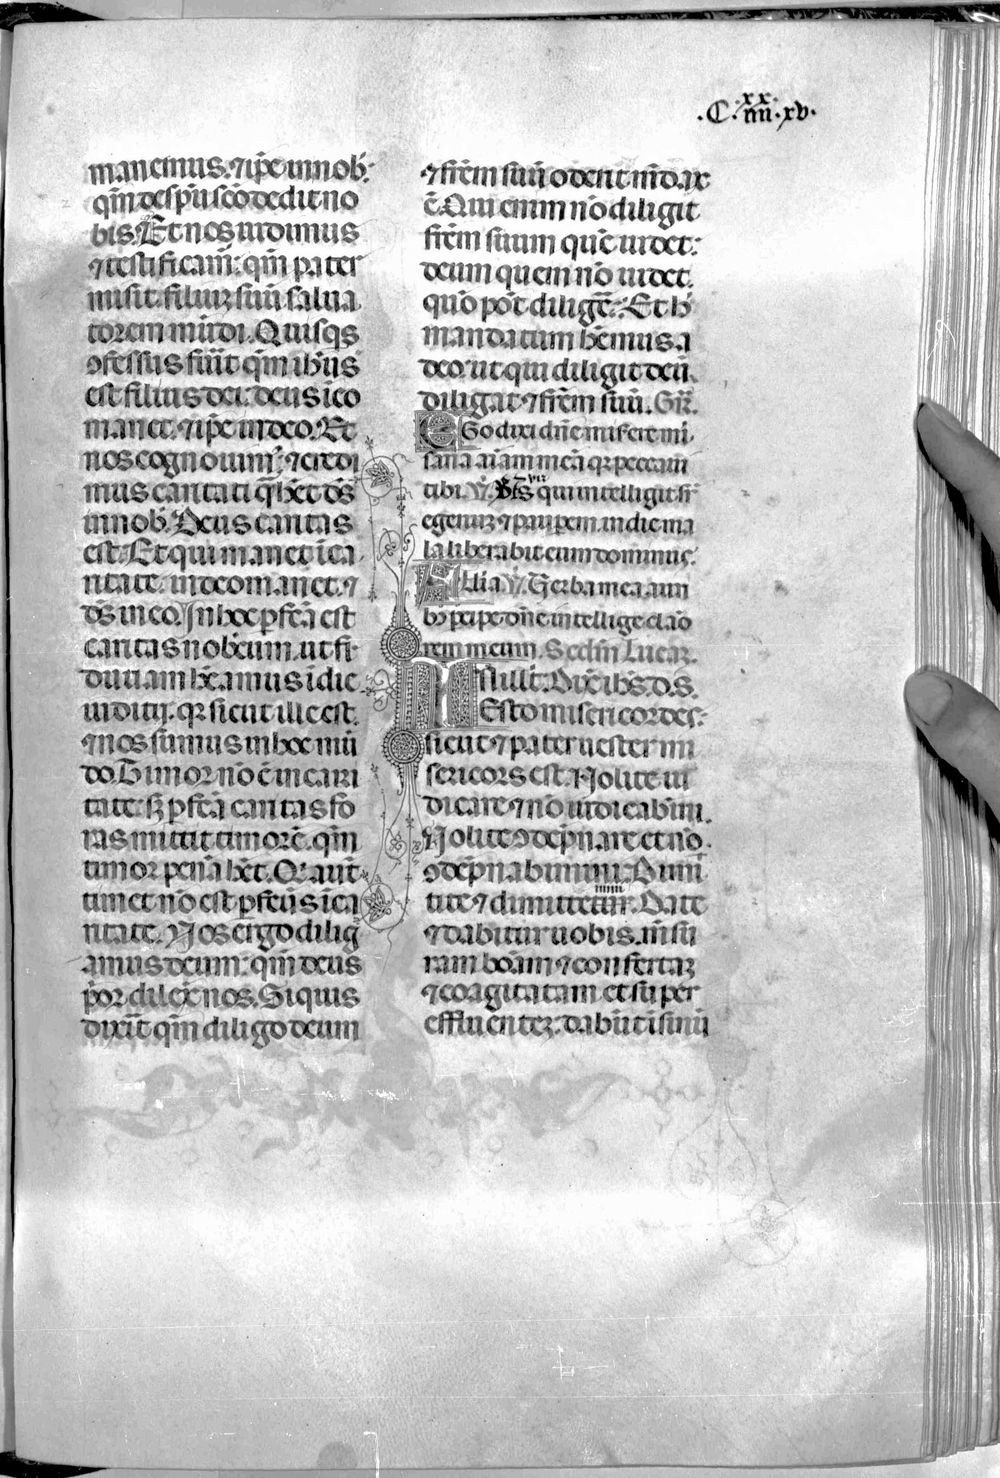 .C.xx
iiii.xv.
manemus. ⁊ ip̄e in nob̄.
qm̄ de sp̄u sc̄o dedit no
bis. Et nos uidimus
⁊ testificam̄: qm̄ pater
misit filiuꝫ suū salua
torem mūdi. Quisqꝫ
ꝯfessus fuīt qm̄ ih̄us
est filius dei: deus ī eo
manet. ⁊ ip̄e in deo. Et
nos cognouim̄: ⁊ credi
mus caritati q̄ h̄et dꝰs
in nob̄. Deus caritas
est. Et qui manet ī ca
ritate. in deo manet. ⁊
ds̄ in eo. In hoc ꝑfc̄a est
caritas nobcum. ut fi
duciam h̄eamus ī die
iudicij. qꝛ sicut ille est.
⁊ nos sumus in hoc mū
do. Timor nō ē in cari
tate: sꝫ ꝑfc̄a caritas fo
ras mittit timorē. qm̄
timor penā h̄et. Qui aut̄
timet nō est ꝑfectꝰ ī ca
ritate. Nos ergo dilig
amus deum: qm̄ deus
p̄or dilex̄ nos. Si quis
dixīt qm̄ diligo deum
⁊ frēm suū oderit mēdax
ē. Qui enim nō diligit
frēm suum quē uidet:
deum quem nō uidet.
quō pōt diligē̄. Et h̄
mandatum h̄emus a
deo. ut qui diligit deū.
diligat ⁊ frēm suū. Gr̄.
EGo dixi dn̄e miserere mi.
sana aīam meā qꝛ peccaui
tibi. V̄. Bt̄s qui intelligit sr̄
egenuꝫ ⁊ pauꝑem. in die ma
la liberabit eum dominus.
Allīa. V̄. Verba mea auri
bꝫ ꝑcipe dn̄e intellige clāo
rem meum. Secdm̄ Lucaꝫ.
IN illīt. Dix̄ ih̄s. d. s.
Estote misericordes:
sicut ⁊ pater uester mi
sericors est. Nolite iu
dicare ⁊ nō iudicabim̄.
Nolite ꝯdēpnare et nō
ꝯdēpnabimini. Dimi
tite ⁊ dimittemini. Date
⁊ dabitur uobis. mēsu
ram boām ⁊ confertaꝫ
⁊ coagitatam et super
effluenteꝫ: dabūt ī sinū